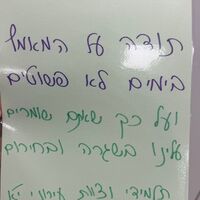 תודה על המאמץ
בימים לא פשוטים
ועל כך שאתם שומרים
עלינו בשגרה ובחירום
תלמידי וצוות עירוני יא